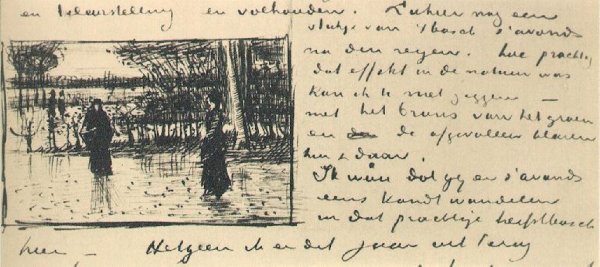 en kleurstelling en volhouden. Ziehier nog een
vlakje van 't bosch s'avonds
na den regen. hoe prachtig
dat effekt in de natuur was
kan ik U niet zeggen –
met het brons van het groen
en de afgevallen bladeren
hier & daar.
Ik wou dat gij er s'avonds
eens kondt wandelen
in dat prachtige herfstbosch
hier – Hetgeen ik er dit jaar uit terug